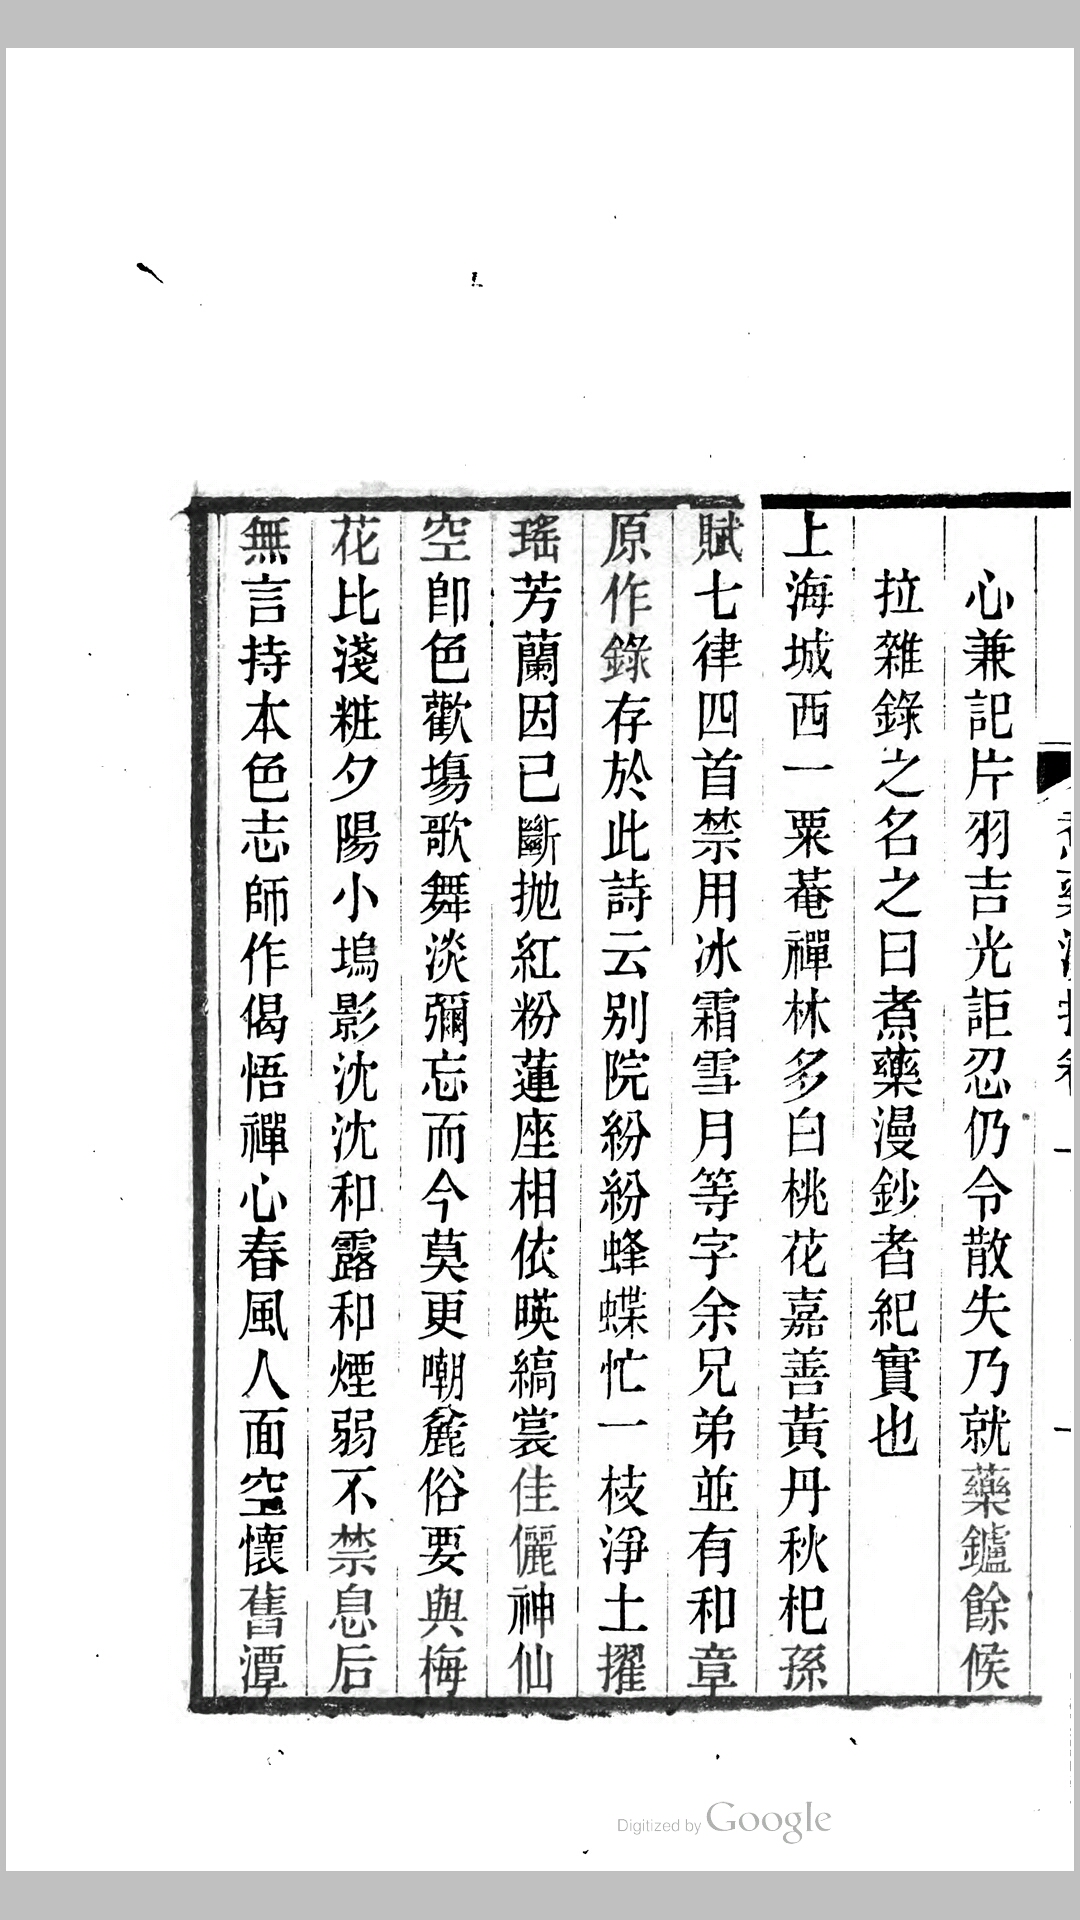 心兼記片羽吉光詎忍仍令散失乃就藥鑪餘候
拉雜錄之名之曰煮藥漫鈔者紀實也
上海城西一粟菴禪林多白桃花嘉善黃丹秋杞孫
賦七律四首禁用冰霜雪月等字余兄弟並有和章
原作錄存於此詩云别院紛紛蜂蝶忙一枝淨土擢
瑤芳蘭因已斷拋紅粉蓮座相依暎縞裳佳儷神仙
空卽色歡塲歌舞淡彌忘而今莫更嘲麄俗要與梅
花比淺粧夕陽小塢影沈沈和露和煙弱不禁息后
無言持本色志師作偈悟禪心春風人面空懷舊潭
Digitized by Google